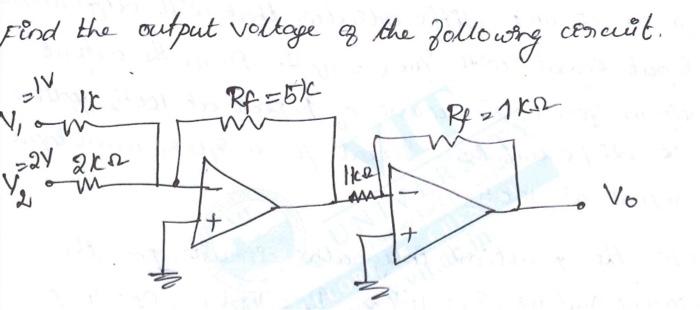 Find the output voltage of the following circuit.
=1V
1K
Rf = 5K
Rf = 1KΩ
V1
=2V 2KΩ
V2
1KΩ
Vo
- + - +